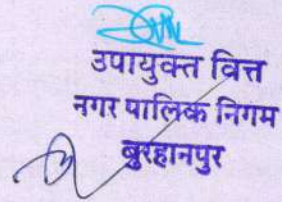 उपायुक्त वित्त
नगर पालिक निगम
बुरहानपुर